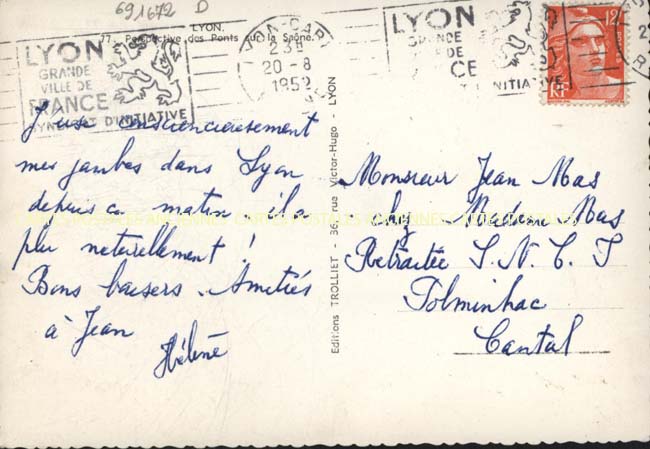 691672 D
LYON.
77. Perspective des Ponts sur la Saône.
LYON
GRANDE
VILLE DE
FRANCE
SYNDICAT D'INITIATIVE
LYON-GARE
23H
20-8
1952
LYON
GRANDE
DE
CE
T INITIATIVE
12F
RF
J'use consciencieusement
mes jambes dans Lyon
depuis ce matin il a
plu naturellement !
Bons baisers. Amitiés
à Jean
Hélène
Editions TROLLIET - 36, rue Victor-Hugo - LYON
Monsieur Jean Mas
chez Madame Mas
Retraitée S.N.C.F
Polminhac
Cantal
CARTES POSTALES ANCIENNES